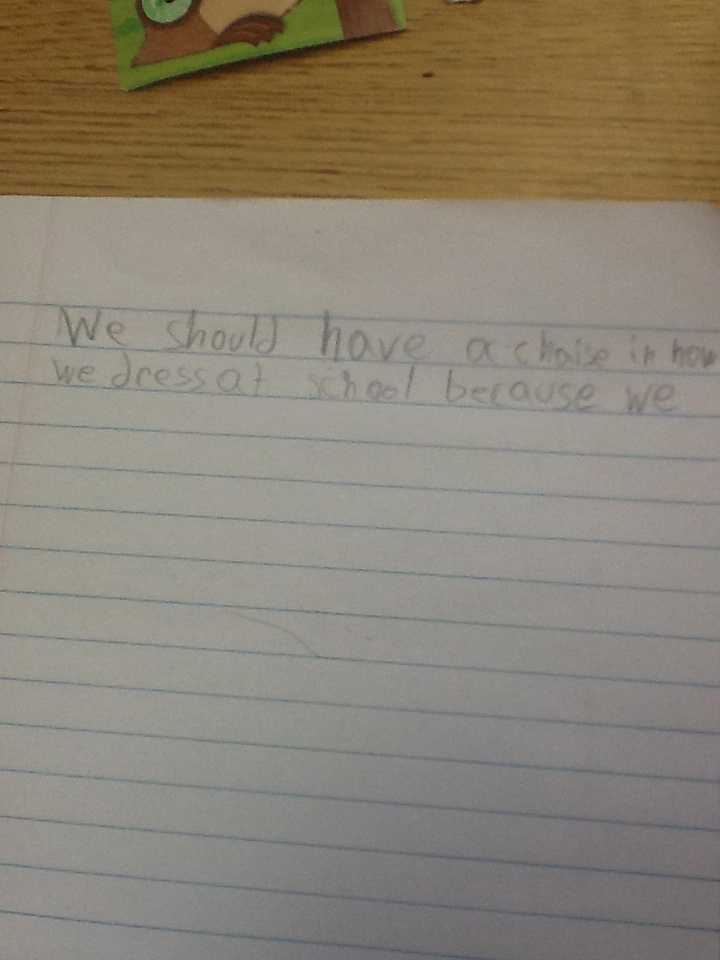 We should have a chaise in how
we dress at school because we